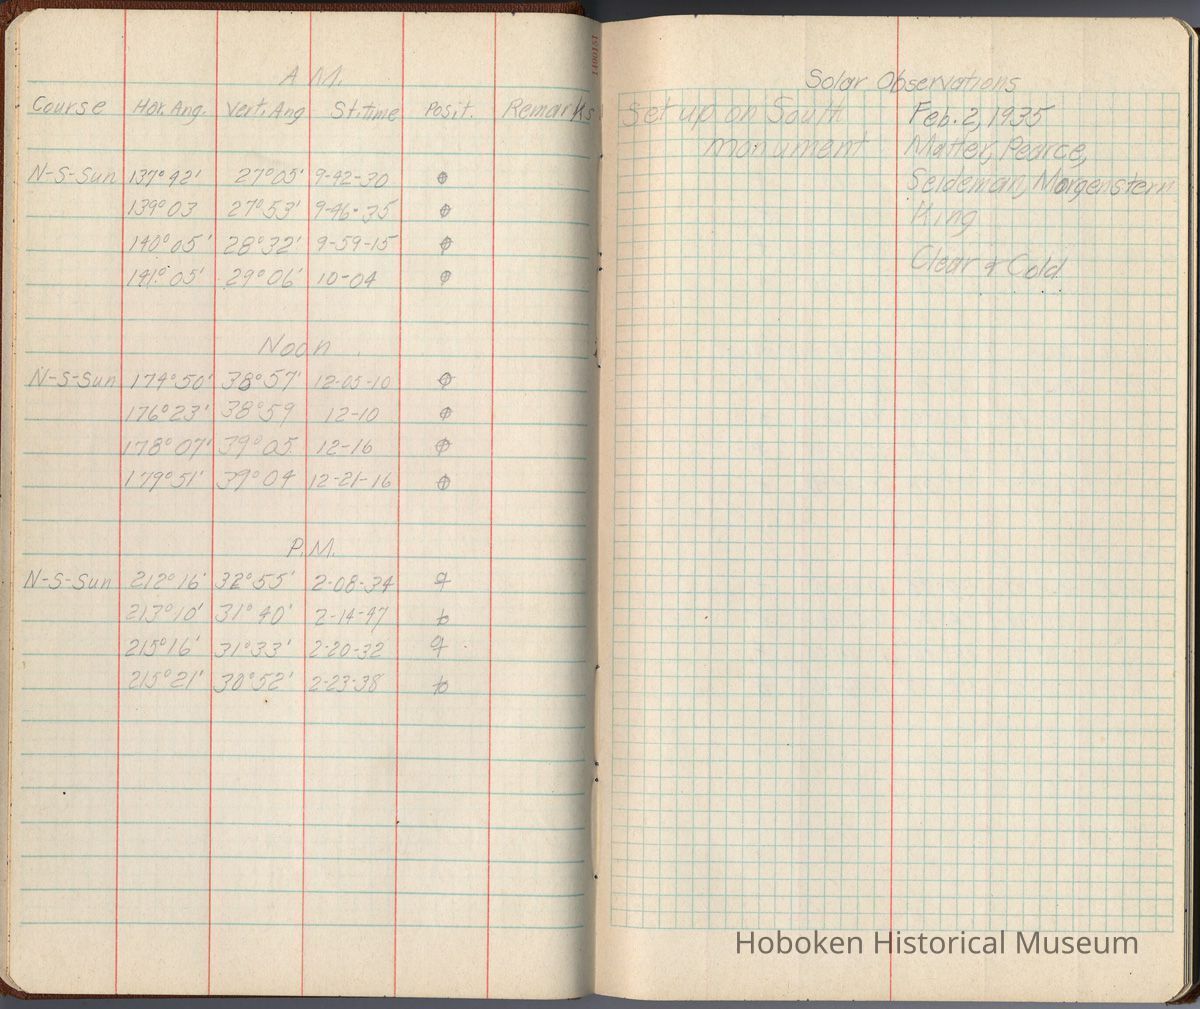 A.M.
Course Hor. Ang. Vert. Ang. St. time Posit. Remarks
N-S-Sun 137°42' 27°05' 9-42-30
139°03 27°53' 9-46-35
140°05' 28°32' 9-59-15
141°05' 29°06' 10-04
Noon
N-S-Sun 174°50' 38°57' 12-05-10
176°23' 38°59 12-10
178°07' 39°05 12-16
179°51' 39°04 12-21-16
P.M.
N-S-Sun 212°16' 32°55' 2-08-34
213°10' 31°40' 2-14-47
215°16' 31°33' 2-20-32
215°21' 30°52' 2-23-38
1490151
Solar Observations
Set up on South Feb. 2, 1935
monument Matter, Pearce,
Seideman, Morgenstern
King
Clear & Cold
Hoboken Historical Museum